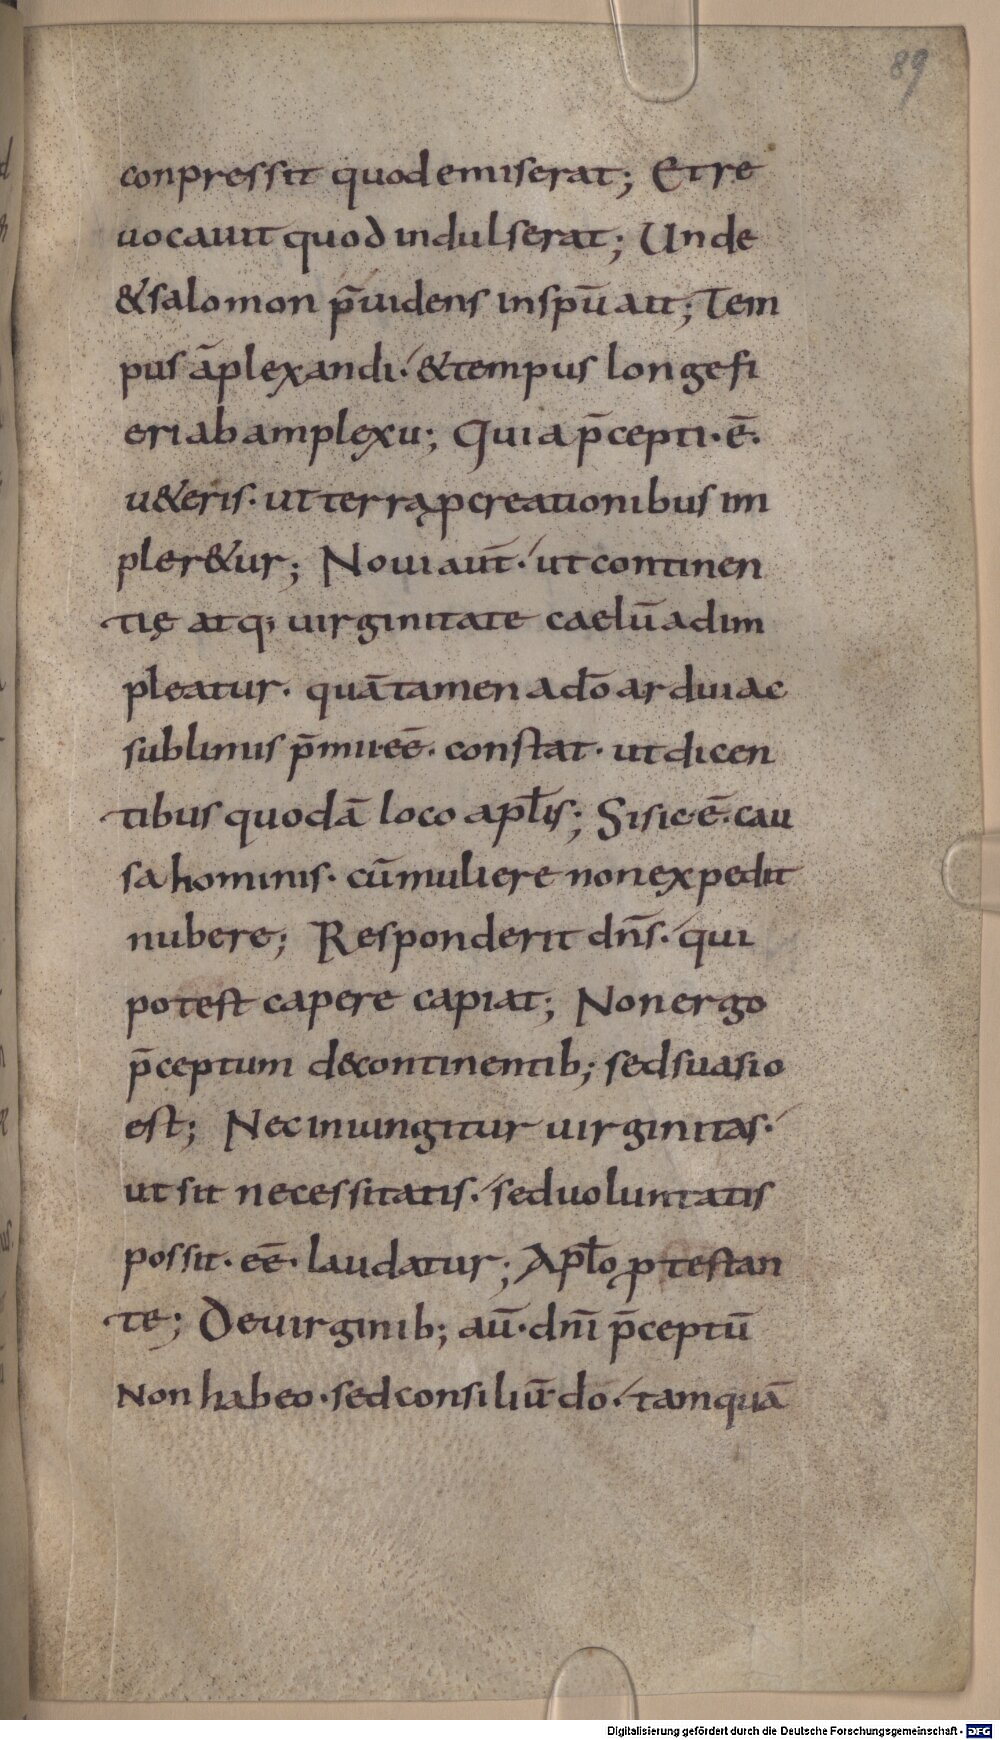 89
conpressit quod emiserat; Et re
uocauit quod indulserat; Unde
& salomon p̄uidens in sp̄u ait; Tem
pus āplexandi· & tempus longe fi
eri ab amplexu; Quia p̄cepti· ē·
u&eris· ut terrę pcreationibus im
pler&ur; Noui aut̄· ut continen
tię atq; uirginitate caelū adim
pleatur· quā tamen ado̅ ardui ac
sublimis p̄mii eē· constat· ut dicen
tibus quodā loco apl̄is; Si sic ē· cau
sa hominis· cū muliere non expedit
nubere; Responderit dn̄s· qui
potest capere capiat; Non ergo
p̄ceptum de continentib; sed suasio
est; Nec iniungitur uirginitas·
ut sit necessitatis· sed uoluntatis
possit· eē· laudatur; Apl̄o ptestan
te; De uirginib; aū· dn̄i p̄ceptū
Non habeo· sed consiliū· do· tamquā
Digitalisierung gefördert durch die Deutsche Forschungsgemeinschaft - DFG